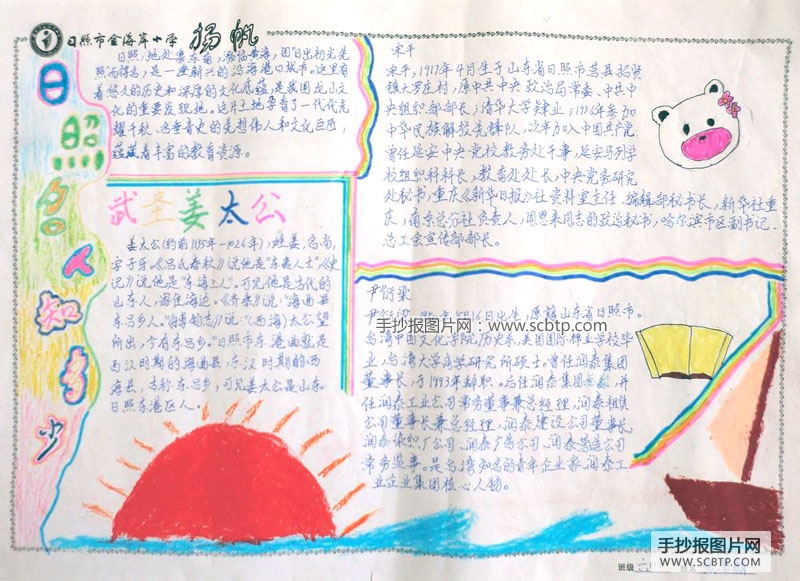 日照市金海岸小学 扬帆
日照名人知多少
日照,地处鲁东南,濒临黄海,因“日出初光先
照”而得名,是一座新兴的沿海港口城市。这里有
着悠久的历史和深厚的文化底蕴,是我国龙山文
化的重要发祥地。这片土地孕育了一代代光
耀千秋、名垂青史的先哲伟人和文化巨匠,
蕴藏着丰富的教育资源。
武圣姜太公
姜太公(约前1135年-1026年),姓姜,名尚,
字子牙。《吕氏春秋》说他是“东夷人士”,《史
记》说他是“东海上人”。可见他是古代的
山东人,居住海边。《齐乘》说:“海曲县
东吕乡人。”《博物志》说:“(西海)太公望
所出,今有东吕乡。”日照市东港曲就是
西汉时期的海曲县,东汉时期的西
海县,古称东吕乡,可见姜太公是山东
日照东港区人。
宋平
宋平,1917年4月生于山东省日照市莒县招贤
镇大罗庄村,原中共中央政治局常委、中共中
央组织部部长;清华大学肄业;1936年参加
中华民族解放先锋队,次年加入中国共产党。
曾任延安中央党校教务处干事,延安马列学
校组织科科长,教育处处长,中央党务研究
处秘书,重庆《新华日报》社资料室主任、编辑部秘书长,新华社重
庆、南京总分社负责人,周恩来同志的政治秘书,哈尔滨市区副书记、
总工会宣传部部长。
尹衍梁
日出生,原籍山东省日照市。
手抄报图片网:www.scbtp.com
台湾中国文化学院历史系、美国国际雄士学校毕
业,台湾大学商学研究所硕士。曾任润泰集团
董事长,于1993年辞职。后任润泰集团总裁,并
任润泰工业公司常务董事兼总经理,润泰租赁
公司董事长兼总经理,润泰建设公司董事长,
润泰染织厂公司、润泰广告公司、润泰营造公司
常务监事。是台湾知名的青年企业家,润泰工
业企业集团核心人物。
手抄报图片网
WWW.SCBTP.COM
班级